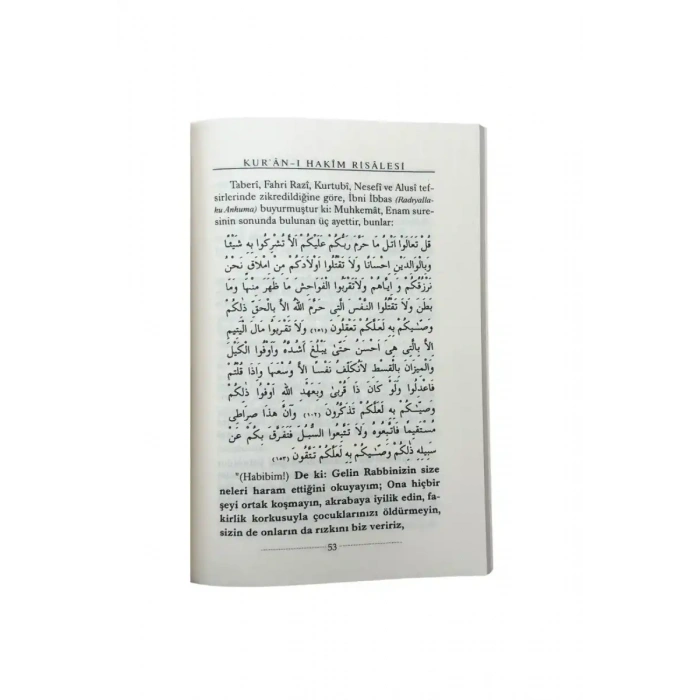 KUR'ÂN-I HAKÎM RİSÂLESİ
Taberî, Fahri Razî, Kurtubî, Nesefî ve Alusî tef-
sirlerinde zikredildiğine göre, İbni İbbas (Radıyalla-
hu Anhuma) buyurmuştur ki: Muhkemât, Enam sure-
sinin sonunda bulunan üç ayettir, bunlar:
قُلْ تَعَالَوْا اَتْلُ مَا حَرَّمَ رَبُّكُمْ عَلَيْكُمْ اَلَّا تُشْرِكُوا بِهِ شَيْئًا
وَبِالْوَالِدَيْنِ اِحْسَانًا وَلَا تَقْتُلُوا اَوْلَادَكُمْ مِنْ اِمْلَاقٍ نَحْنُ
نَرْزُقُكُمْ وَ اِيَّاهُمْ وَلَاتَقْرَبُوا الْفَوَاحِشَ مَا ظَهَرَ مِنْهَا وَمَا
بَطَنَ وَلَا تَقْتُلُوا النَّفْسَ الَّتِى حَرَّمَ اللّٰهُ اِلَّا بِالْحَقِّ ذٰلِكُمْ
وَصّٰيكُمْ بِهِ لَعَلَّكُمْ تَعْقِلُونَ (١٥١) وَلَا تَقْرَبُوا مَالَ الْيَتِيمِ
اِلَّا بِالَّتِى هِىَ اَحْسَنُ حَتّٰى يَبْلُغَ اَشُدَّهُ وَاَوْفُوا الْكَيْلَ
وَالْمِيزَانَ بِالْقِسْطِ لَانُكَلِّفُ نَفْسًا اِلَّا وُسْعَهَا وَاِذَا قُلْتُمْ
فَاعْدِلُوا وَلَوْ كَانَ ذَا قُرْبٰى وَبِعَهْدِ اللّٰهِ اَوْفُوا ذٰلِكُمْ
وَصّٰيكُمْ بِهِ لَعَلَّكُمْ تَذَكَّرُونَ (١٠٢) وَاَنَّ هٰذَا صِرَاطِى
مُسْتَقِيمًا فَاتَّبِعُوهُ وَلَا تَتَّبِعُوا السُّبُلَ فَتَفَرَّقَ بِكُمْ عَنْ
سَبِيلِهِ ذٰلِكُمْ وَصّٰيكُمْ بِهِ لَعَلَّكُمْ تَتَّقُونَ (١٥٣)
"(Habibim!) De ki: Gelin Rabbinizin size
neleri haram ettiğini okuyayım; Ona hiçbir
şeyi ortak koşmayın, akrabaya iyilik edin, fa-
kirlik korkusuyla çocuklarınızı öldürmeyin,
sizin de onların da rızkını biz veririz,
53